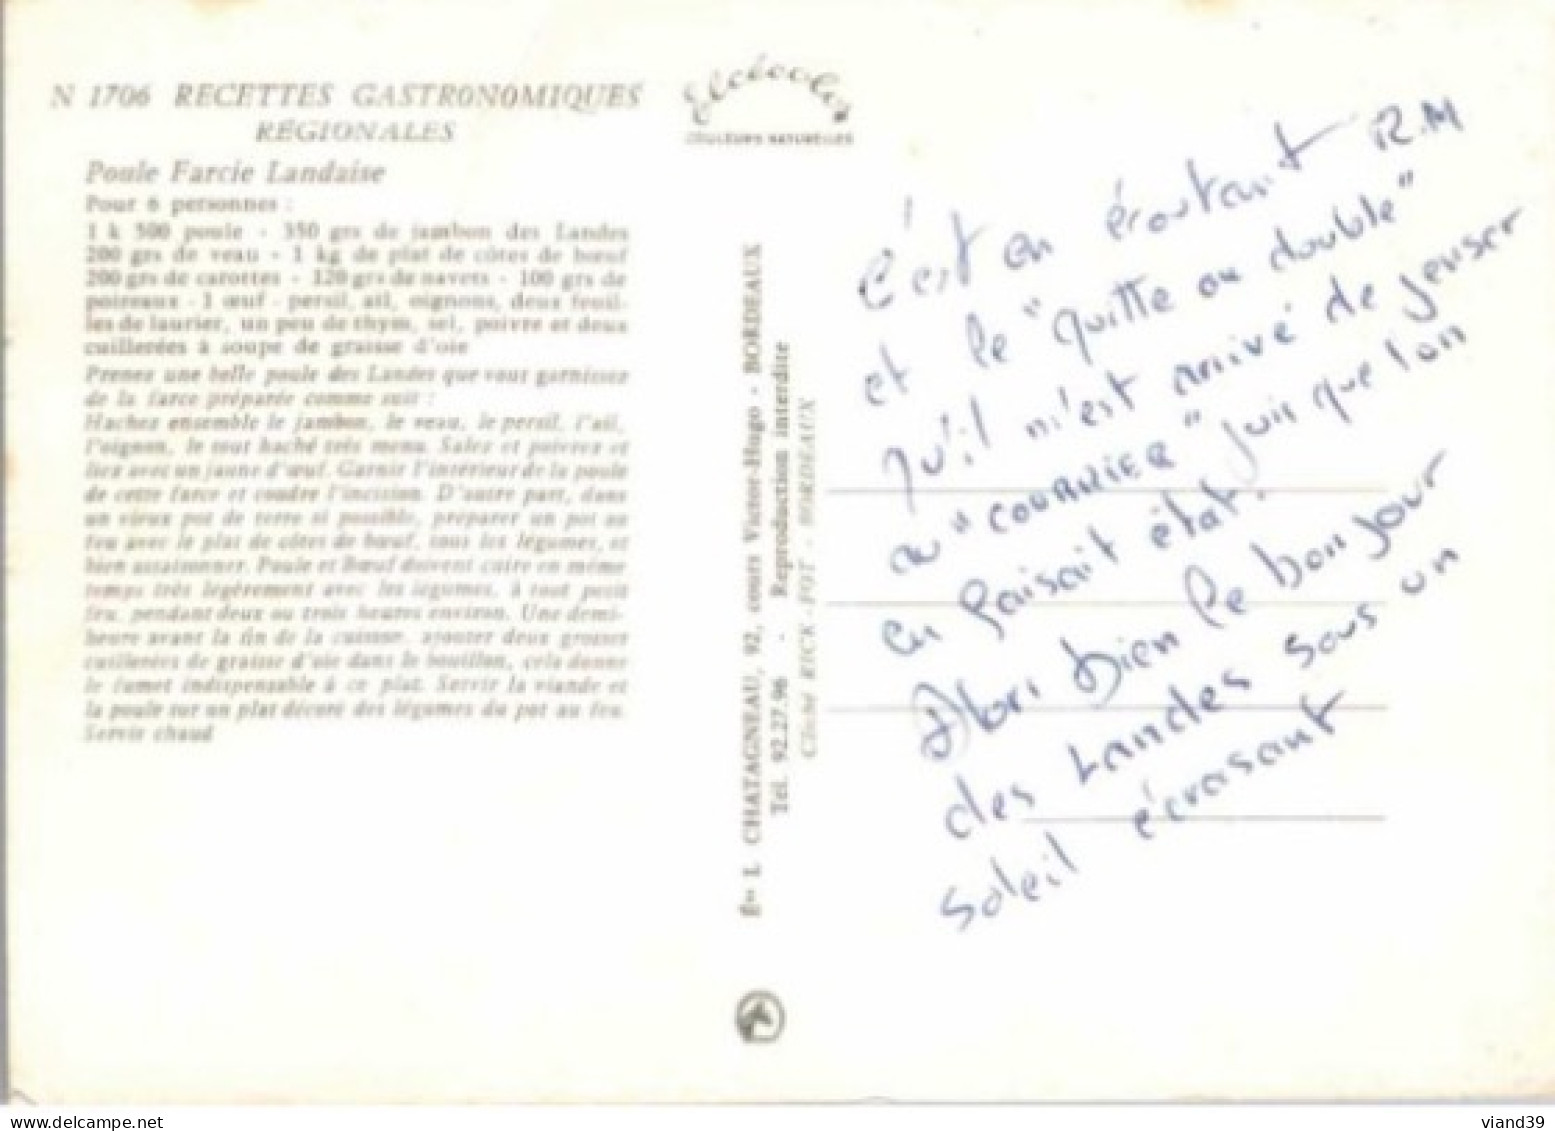 N 1706 RECETTES GASTRONOMIQUES
RÉGIONALES
Poule Farcie Landaise
Pour 6 personnes :
1 k 500 poule - 350 grs de jambon des Landes
200 grs de veau - 1 kg de plat de côtes de bœuf
200 grs de carottes - 120 grs de navets - 100 grs de
poireaux - 1 œuf - persil, ail, oignons, deux feuil-
les de laurier, un peu de thym, sel, poivre et deux
cuillerées à soupe de graisse d'oie
Prenez une belle poule des Landes que vous garnissez
de la farce préparée comme suit :
Hachez ensemble le jambon, le veau, le persil, l'ail,
l'oignon, le tout haché très menu. Salez et poivrez et
liez avec un jaune d'œuf. Garnir l'intérieur de la poule
de cette farce et coudre l'incision. D'autre part, dans
un vieux pot de terre si possible, préparer un pot au
feu avec le plat de côtes de bœuf, tous les légumes, et
bien assaisonner. Poule et Bœuf doivent cuire en même
temps très légèrement avec les légumes, à tout petit
feu, pendant deux ou trois heures environ. Une demi-
heure avant la fin de la cuisson, ajouter deux grosses
cuillerées de graisse d'oie dans le bouillon, cela donne
le fumet indispensable à ce plat. Servir la viande et
la poule sur un plat décoré des légumes du pot au feu.
Servir chaud
Elcécolor
COULEURS NATURELLES
Éon L. CHATAGNEAU, 92, cours Victor-Hugo - BORDEAUX
Tél. 92.27.96 - Reproduction interdite
Cliché RICK-FOT - BORDEAUX
C'est en écoutant R.M
et le "quitte ou double"
qu'il m'est arrivé de penser
au "COURRIER" puis que l'on
en faisait état.
Alors bien le bonjour
des Landes sous un
soleil écrasant
viand39